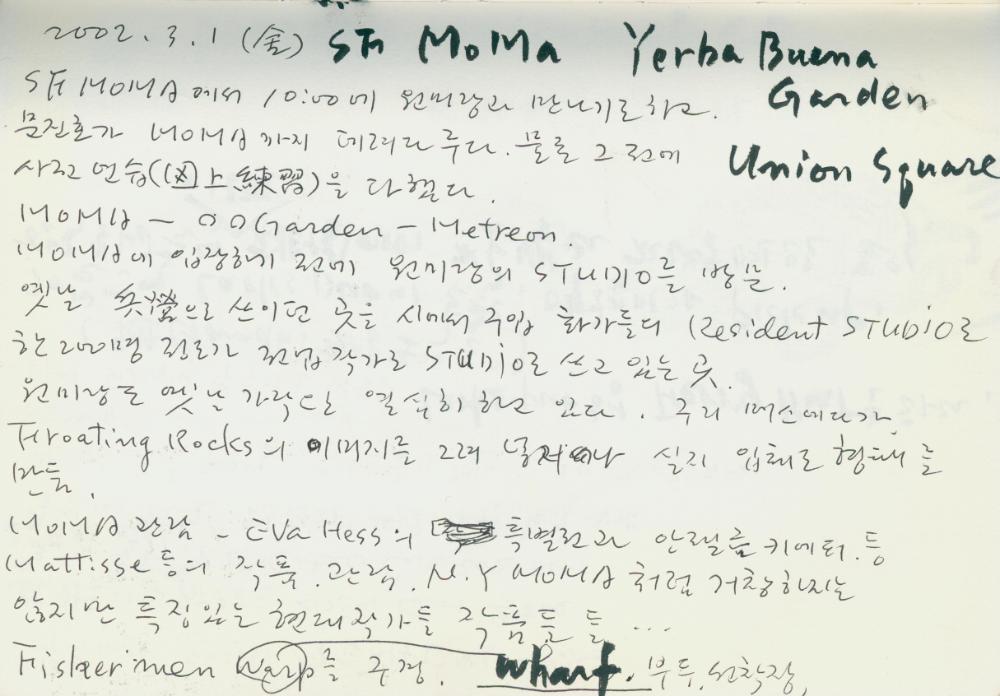 2002. 3. 1 (金) SF MoMa Yerba Buena Garden
SF MOMA에서 10:00에 원미랑과 만나기로 하고. Union Square
문진호가 MOMA까지 데려다 주다. 물론 그 전에
사전 연습(図上練習)을 다했다.
MOMA - ○○Garden - Metreon.
MOMA에 입장하기 전에 원미랑의 STUDIO를 방문.
옛날 兵營으로 쓰이던 곳을 시에서 주입 화가들의 (Resident STUDIO로
한 200명 전로가 전업작가로 STUDIO로 쓰고 있는 곳.
원미랑도 옛날 가락으로 열심히 하고 있다. 우리 머스에다가
Froating Rocks의 이미지를 그려 실지 입체로 형태를
만듬.
MOMA 관람 - EVa Hess의 특별전과 안젤름 키에퍼. 등
Mattisse 등의 작품. 관람. N.Y MOMA처럼 거창하지는
않지만 특징있는 현대작가들 작품들을 ...
Fiskerimen Warp를 구경. wharf. 부두, 선착장,